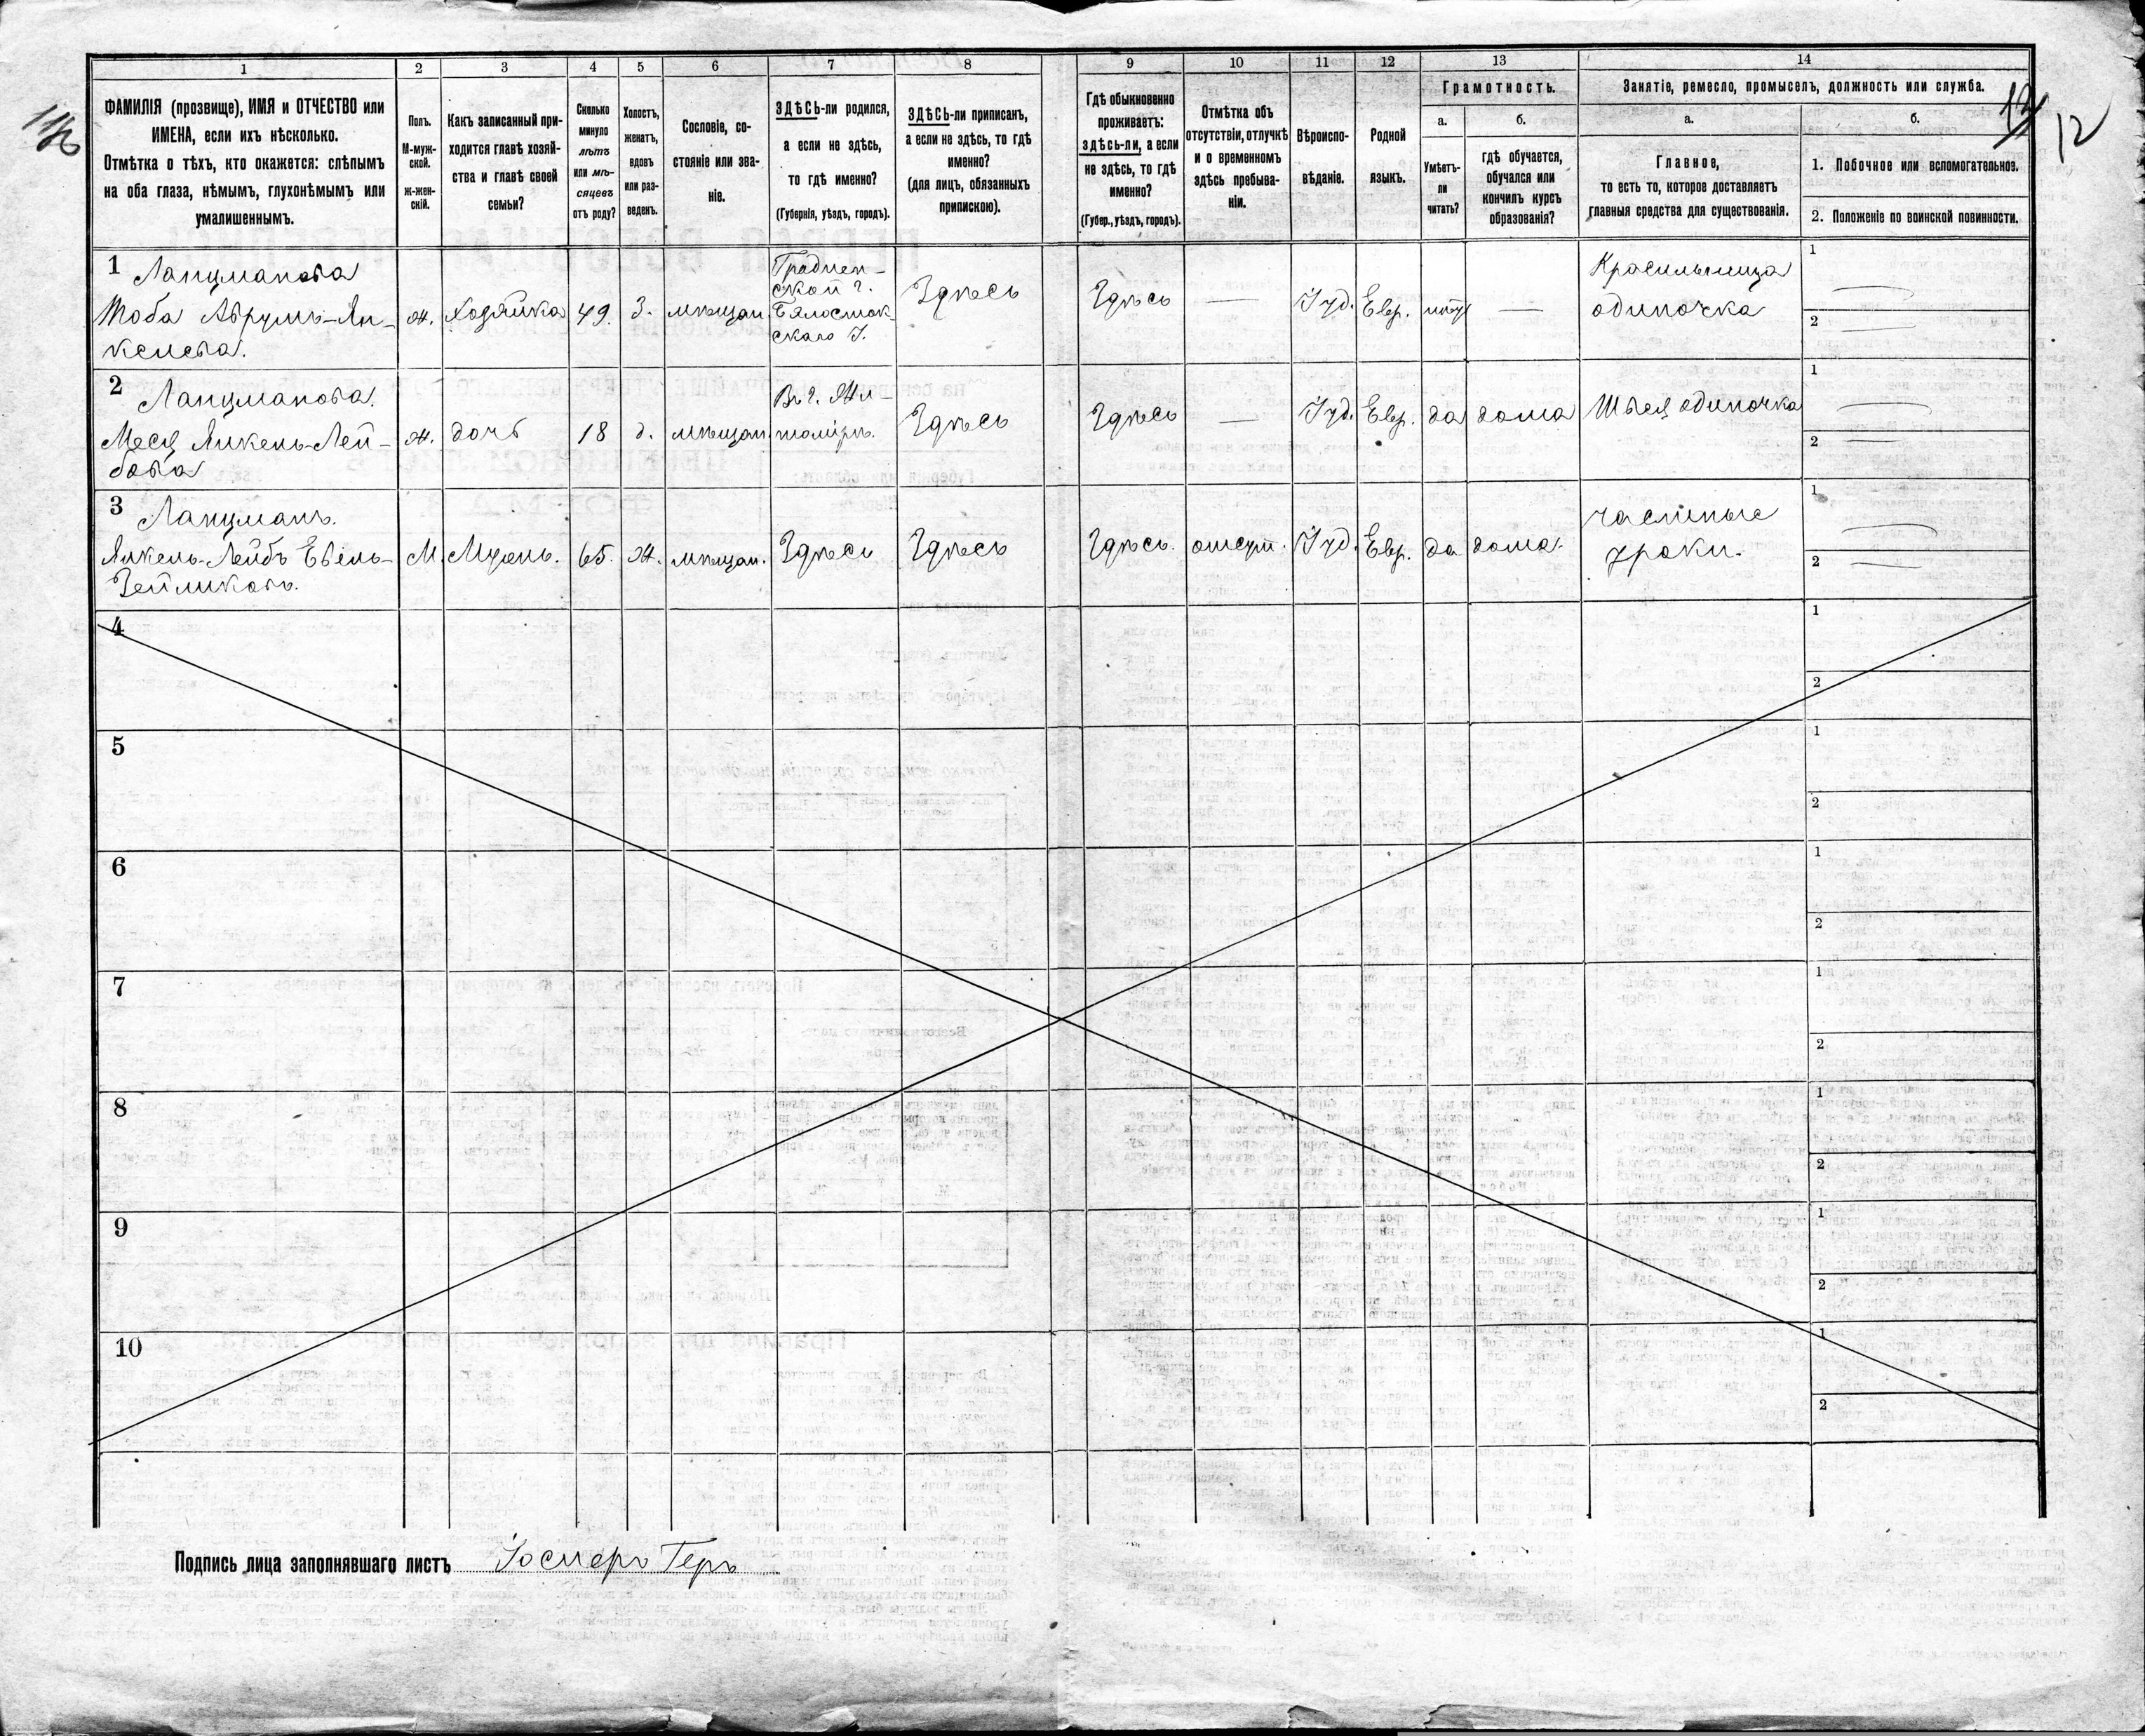 1 2 3 4 5 6 7 8 9 10 11 12 13 14
ФАМИЛІЯ (прозвище), ИМЯ и ОТЧЕСТВО или
ИМЕНА, если ихъ нѣсколько.
Отмѣтка о тѣхъ, кто окажется: слѣпымъ
на оба глаза, нѣмымъ, глухонѣмымъ или
умалишеннымъ.
Полъ.
М-муж-
ской.
Ж-жен-
скій.
Какъ записанный при-
ходится главѣ хозяй-
ства и главѣ своей
семьи?
Сколько
минуло
лѣтъ
или мѣ-
сяцевъ
отъ роду?
Холостъ,
женатъ,
вдовъ
или раз-
веденъ.
Сословіе, со-
стояніе или зва-
ніе.
ЗДѢСЬ-ли родился,
а если не здѣсь,
то гдѣ именно?
(Губернія, уѣздъ, городъ).
ЗДѢСЬ-ли приписанъ,
а если не здѣсь, то гдѣ
именно?
(для лицъ, обязанныхъ
припискою).
Гдѣ обыкновенно
проживаетъ:
здѣсь-ли, а если
не здѣсь, то гдѣ
именно?
(Губер., уѣздъ, городъ).
Отмѣтка объ
отсутствіи, отлучкѣ
и о временномъ
здѣсь пребыва-
ніи.
Вѣроиспо-
вѣданіе.
Родной
языкъ.
Грамотность.
а.
Умѣетъ-
ли
читать?
б.
гдѣ обучается,
обучался или
кончилъ курсъ
образованія?
Занятіе, ремесло, промыселъ, должность или служба.
а.
Главное,
то есть то, которое доставляетъ
главныя средства для существованія.
б.
1. Побочное или вспомогательное.
2. Положеніе по воинской повинности.
12
1 Лапцманова
Тоба Аврумъ-Ян-
келева.
ж.
Хозяйка
49.
З.
мѣщан.
Гроднен-
ской г.
Бялосток-
скаго У.
Здѣсь
Здѣсь
—
Іуд.
Евр.
нѣтъ
—
Красильница
одиночка
1 —
2 —
2 Лапцманова.
Меся Янкель-Лей-
бова
ж.
дочь
18
д.
мѣщан.
Въ г. Жи-
томірѣ.
Здѣсь
Здѣсь
—
Іуд.
Евр.
да
дома
Швея одиночка
1 —
2 —
3 Лапцманъ.
Янкель-Лейбъ Евель-
Зейликовъ.
М.
Мужъ.
65.
Ж.
мѣщан.
Здѣсь
Здѣсь
Здѣсь.
отсут.
Іуд.
Евр.
да
дома.
частные
уроки.
1 —
2 —
4 1
2
5 1
2
6 1
2
7 1
2
8 1
2
9 1
2
10 1
2
Подпись лица заполнявшаго листъ